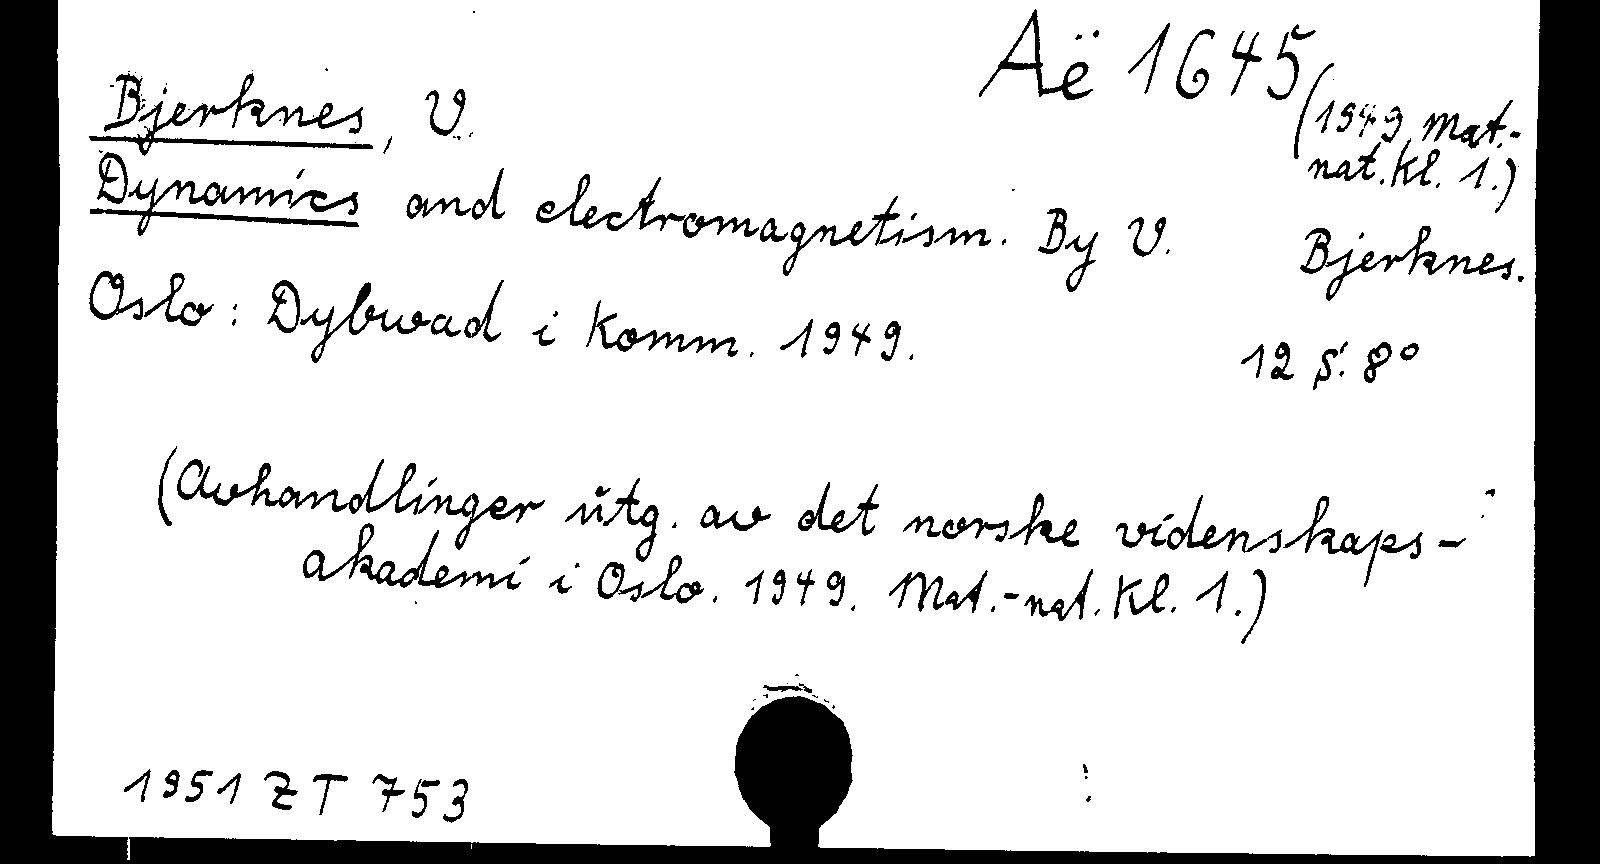 Aë 1645
(1949, Mat.-
nat. Kl. 1.)
Bjerknes, V.
Dynamics and electromagnetism. By V. Bjerknes.
Oslo: Dybwad i Komm. 1949. 12 S. 8°
(Avhandlinger utg. av det norske videnskaps-
akademi i Oslo. 1949. Mat.-nat. Kl. 1.)
1951 ZT 753